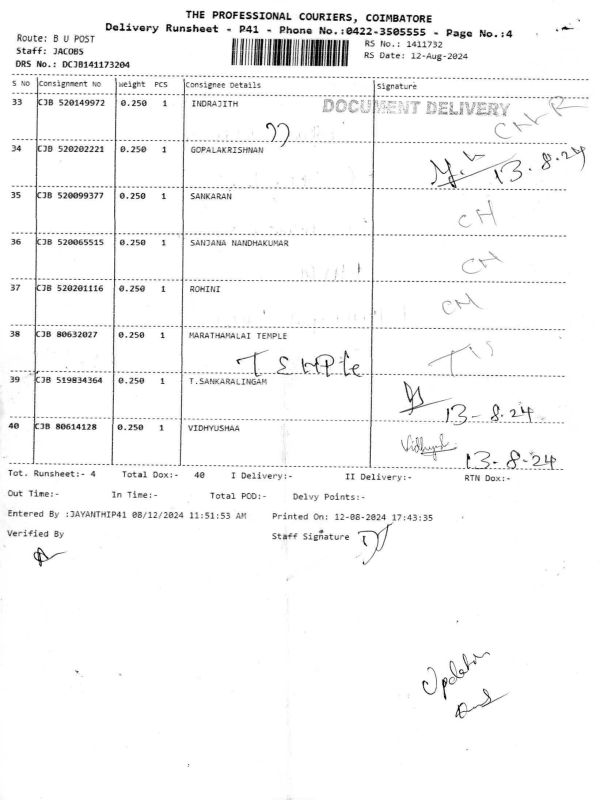 THE PROFESSIONAL COURIERS, COIMBATORE
Delivery Runsheet - P41 - Phone No.:0422-3505555 - Page No.:4
Route: B U POST
RS No.: 1411732
Staff: JACOBS
RS Date: 12-Aug-2024
DRS No.: DCJB141173204
S No Consignment No Weight PCS Consignee Details Signature
33 CJB 520149972 0.250 1 INDRAJITH
DOCUMENT DELIVERY
34 CJB 520202221 0.250 1 GOPALAKRISHNAN
13-8-24
35 CJB 520099377 0.250 1 SANKARAN
CH
36 CJB 520065515 0.250 1 SANJANA NANDHAKUMAR
CH
37 CJB 520201116 0.250 1 ROHINI
CH
38 CJB 80632027 0.250 1 MARATHAMALAI TEMPLE
TEMPle
39 CJB 519834364 0.250 1 T.SANKARALINGAM
13-8-24
40 CJB 80614128 0.250 1 VIDHYUSHAA
13-8-24
Tot. Runsheet:- 4 Total Dox:- 40 I Delivery:- II Delivery:- RTN Dox:-
Out Time:- In Time:- Total POD:- Delvy Points:-
Entered By :JAYANTHIP41 08/12/2024 11:51:53 AM Printed On: 12-08-2024 17:43:35
Verified By Staff Signature